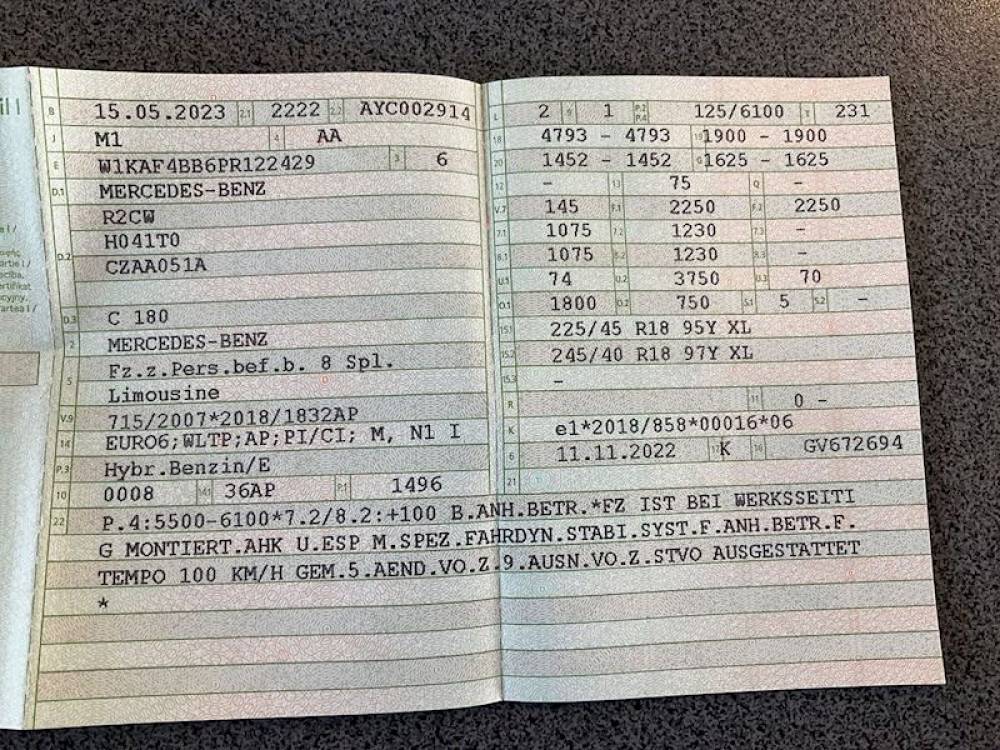 il I
B 15.05.2023 2.1 2222 2.2 AYC002914
J M1 4 AA
E W1KAF4BB6PR122429 3 6
D.1 MERCEDES-BENZ
R2CW
D.2 H041T0
CZAA051A
D.3 C 180
2 MERCEDES-BENZ
5 Fz.z.Pers.bef.b. 8 Spl.
Limousine
V.9 715/2007*2018/1832AP
14 EURO6;WLTP;AP;PI/CI; M, N1 I
P.3 Hybr.Benzin/E
10 0008 14.1 36AP P.1 1496
L 2 9 1 P.2 P.4 125/6100 T 231
18 4793 - 4793 19 1900 - 1900
20 1452 - 1452 G 1625 - 1625
12 - 13 75 Q -
V.7 145 F.1 2250 F.2 2250
7.1 1075 7.2 1230 7.3 -
8.1 1075 8.2 1230 8.3 -
U.1 74 U.2 3750 U.3 70
O.1 1800 O.2 750 S.1 5 S.2 -
15.1 225/45 R18 95Y XL
15.2 245/40 R18 97Y XL
15.3 -
R 11 0 -
K e1*2018/858*00016*06
6 11.11.2022 17 K 16 GV672694
21
22 P.4:5500-6100*7.2/8.2:+100 B.ANH.BETR.*FZ IST BEI WERKSSEITI
G MONTIERT.AHK U.ESP M.SPEZ.FAHRDYN.STABI.SYST.F.ANH.BETR.F.
TEMPO 100 KM/H GEM.5.AEND.VO.Z.9.AUSN.VO.Z.STVO AUSGESTATTET
*